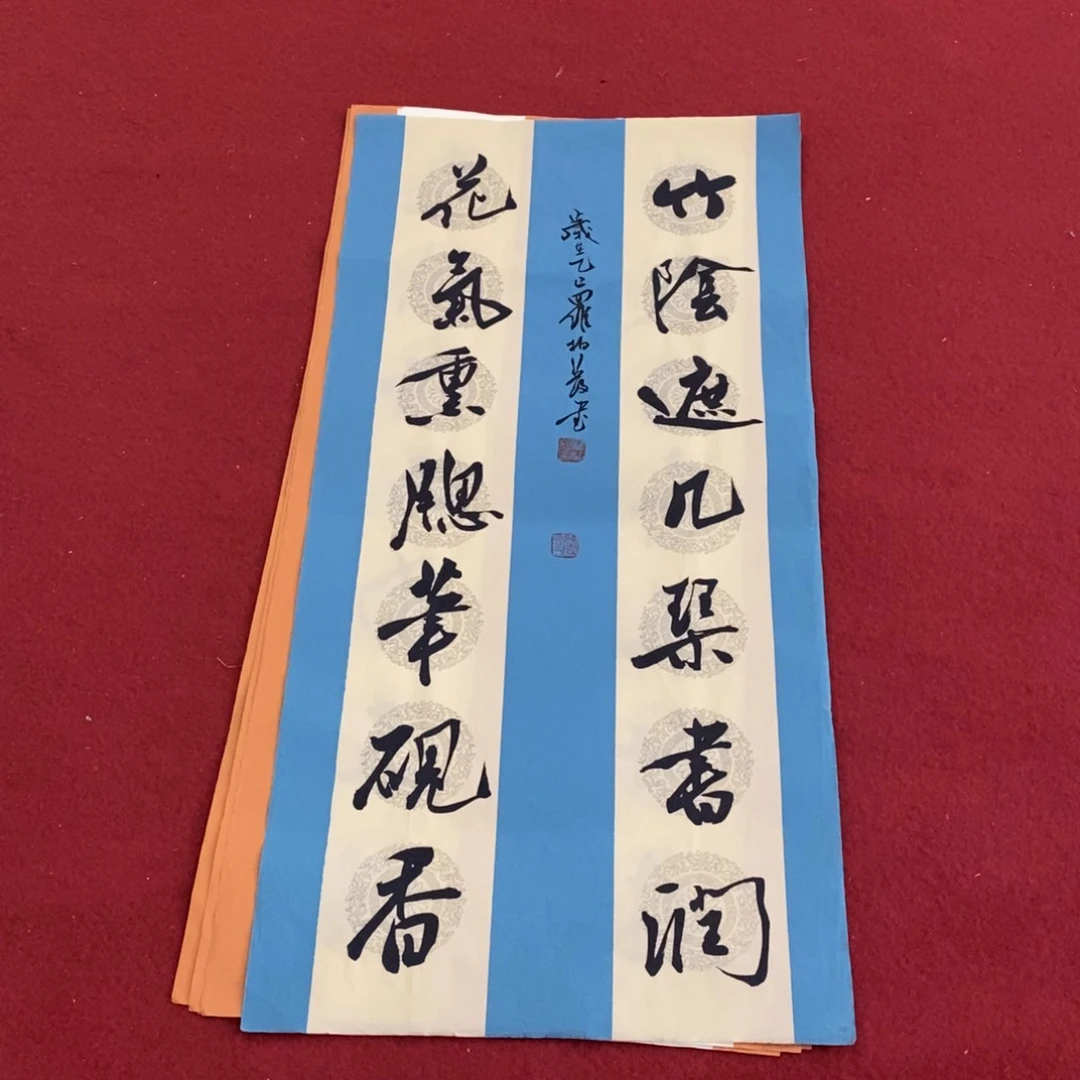 竹陰遮几琴書潤
花氣熏牕筆硯香
歲在乙巳羅
書